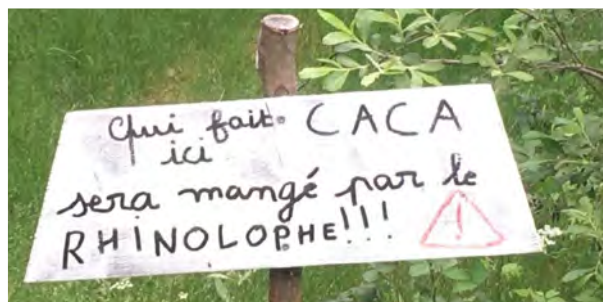 Qui fait CACA
ici
sera mangé par le
RHINOLOPHE!!!
!